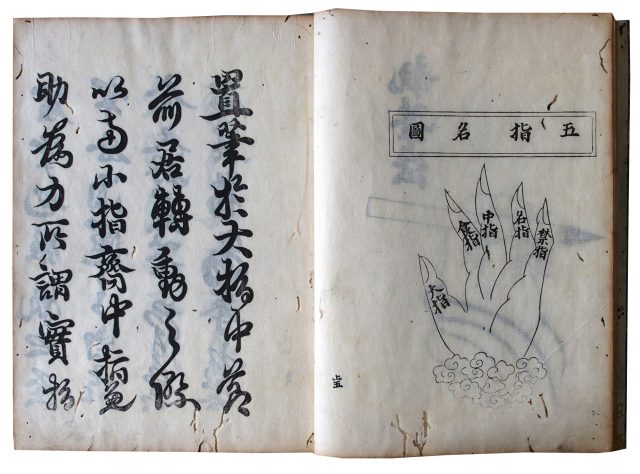 五指名圖
禁指
名指
中指
食指
大指
上五
置筆於大指中節
前居轉動之際
以兩小指齊中指兼
助為力所謂實指